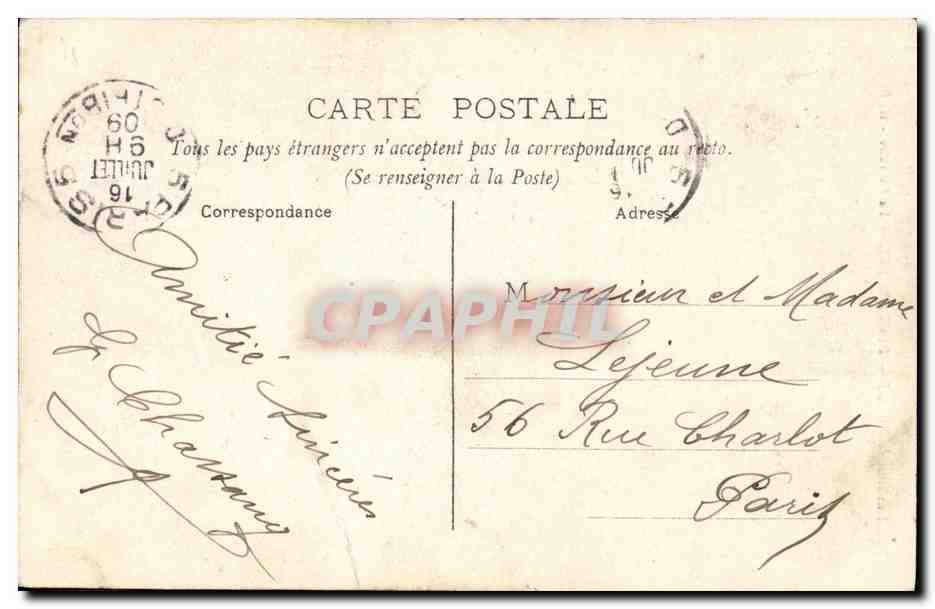 CARTE POSTALE
Tous les pays étrangers n'acceptent pas la correspondance au recto.
(Se renseigner à la Poste)
Correspondance
Adresse
16
JUILLET
9H
09
Amitié sincères
Chassang
Monsieur et Madame
Lejeune
56 Rue Charlot
Paris
CPAPHIL